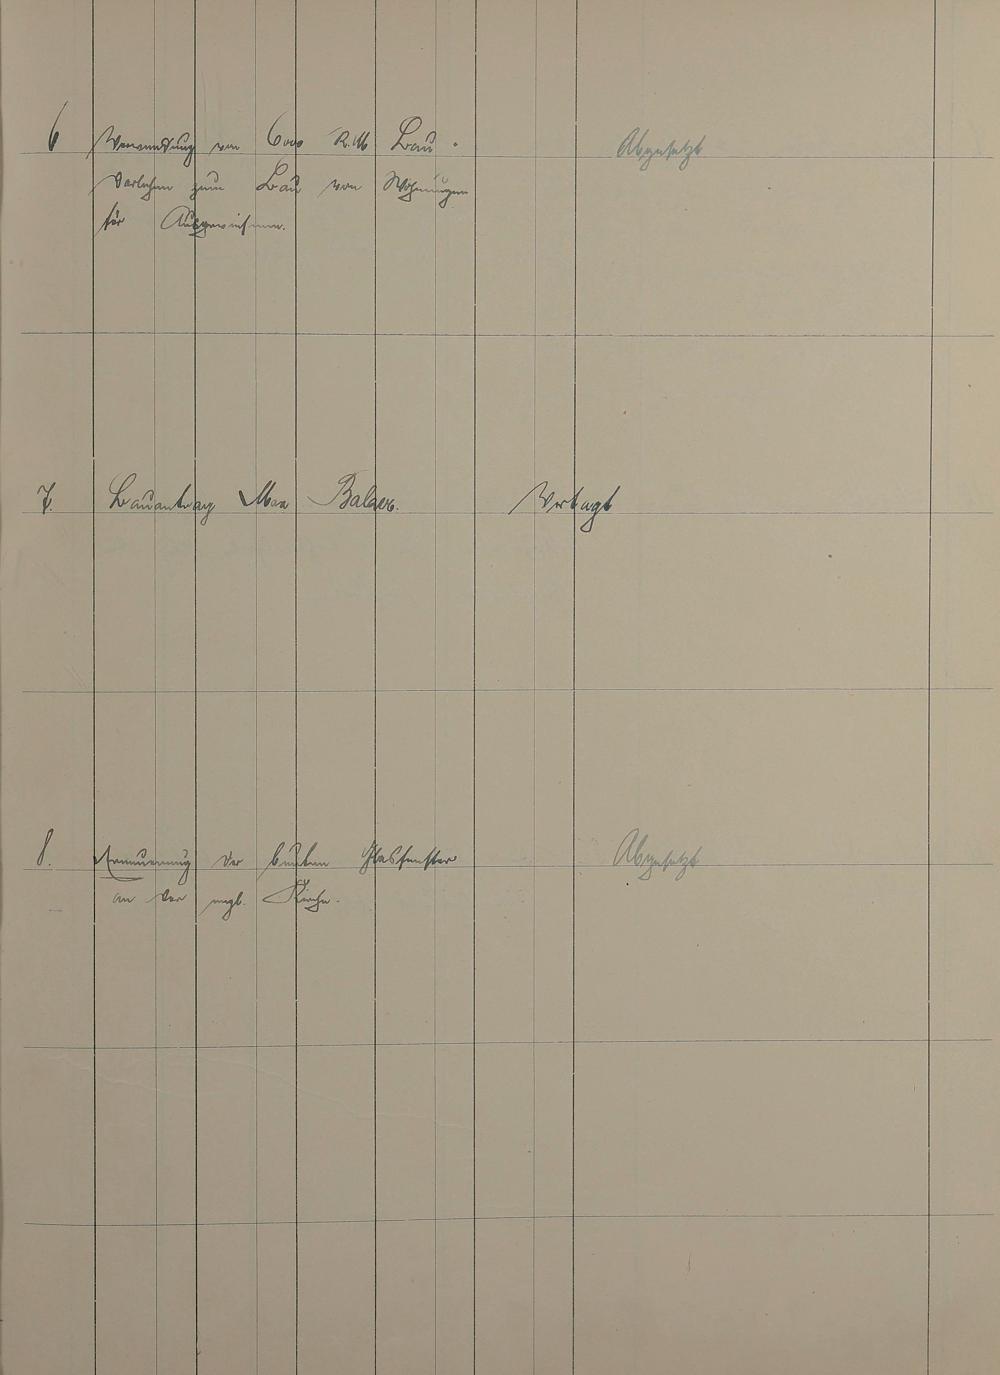 6 Verwendung von 6000 R.M Bau-
darlehen zum Bau von Wohnungen
für Ausgewiesene.
Abgesetzt
7. Bauantrag Max Balzer.
Vertagt
8. Erneuerung der bunten Glasfenster
an der evgl. Kirche.
Abgesetzt